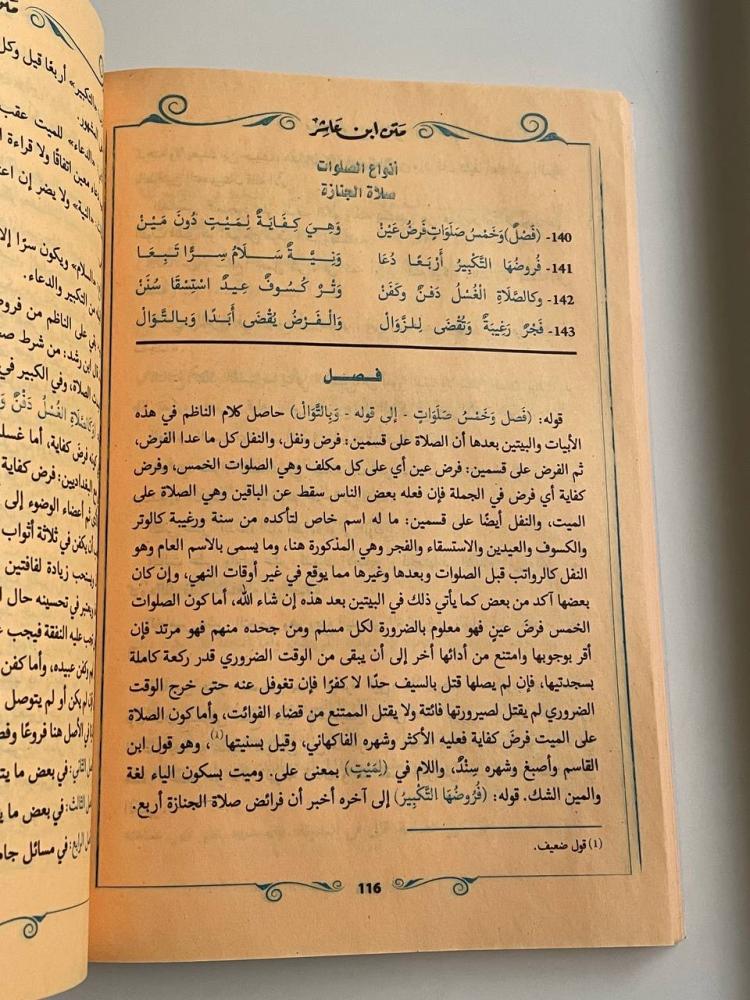 متن ابن عاشر
أنواع الصلوات
صلاة الجنازة
140- (فَصْلٌ) وَخَمْسُ صَلَوَاتٍ فَرْضُ عَيْنْ وَهِيَ كِفَايَةٌ لِمَيْتٍ دُونَ مَيْنْ
141- فُرُوضُهَا التَّكْبِيرُ أَرْبَعًا دُعَا وَنِيَّةٌ سَلَامُ سِرًّا تَبِعَا
142- وكالصَّلَاةِ الْغُسْلُ دَفنٌ وكَفَنْ وَتْرٌ كُسُوفٌ عِيدٌ اسْتِسْقَا سُنَنْ
143- فَجْرٌ رَغِيبَةٌ وَتُقْضَى لِلزَّوَالْ وَالْفَرْضُ يُقْضَى أَبَدًا وَبِالتَّوَالْ
فصل
قوله: (فَصل وَخَمْسُ صَلَوَاتٍ - إلى قوله - وَبِالتَّوَالْ) حاصل كلام الناظم في هذه
الأبيات والبيتين بعدها أن الصلاة على قسمين: فرض ونفل، والنفل كل ما عدا الفرض،
ثم الفرض على قسمين: فرض عين أي على كل مكلف وهي الصلوات الخمس، وفرض
كفاية أي فرض في الجملة فإن فعله بعض الناس سقط عن الباقين وهي الصلاة على
الميت، والنفل أيضًا على قسمين: ما له اسم خاص لتأكده من سنة ورغيبة كالوتر
والكسوف والعيدين والاستسقاء والفجر وهي المذكورة هنا، وما يسمى بالاسم العام وهو
النفل كالرواتب قبل الصلوات وبعدها وغيرها مما يوقع في غير أوقات النهي، وإن كان
بعضها آكد من بعض كما يأتي ذلك في البيتين بعد هذه إن شاء الله، أما كون الصلوات
الخمس فرضَ عينٍ فهو معلوم بالضرورة لكل مسلم ومن جحده منهم فهو مرتد فإن
أقر بوجوبها وامتنع من أدائها أخر إلى أن يبقى من الوقت الضروري قدر ركعة كاملة
بسجدتيها، فإن لم يصلها قتل بالسيف حدًا لا كفرًا فإن تغوفل عنه حتى خرج الوقت
الضروري لم يقتل لصيرورتها فائتة ولا يقتل الممتنع من قضاء الفوائت، وأما كون الصلاة
على الميت فرضَ كفاية فعليه الأكثر وشهره الفاكهاني، وقيل بسنيتها(١)، وهو قول ابن
القاسم وأصبغ وشهره سِنْدٌ، واللام في (لِمَيْتٍ) بمعنى على. وميت بسكون الياء لغة
والمين الشك. قوله: (فُرُوضُهَا التَّكْبِيرُ) إلى آخره أخبر أن فرائض صلاة الجنازة أربع.
(١) قول ضعيف.
116